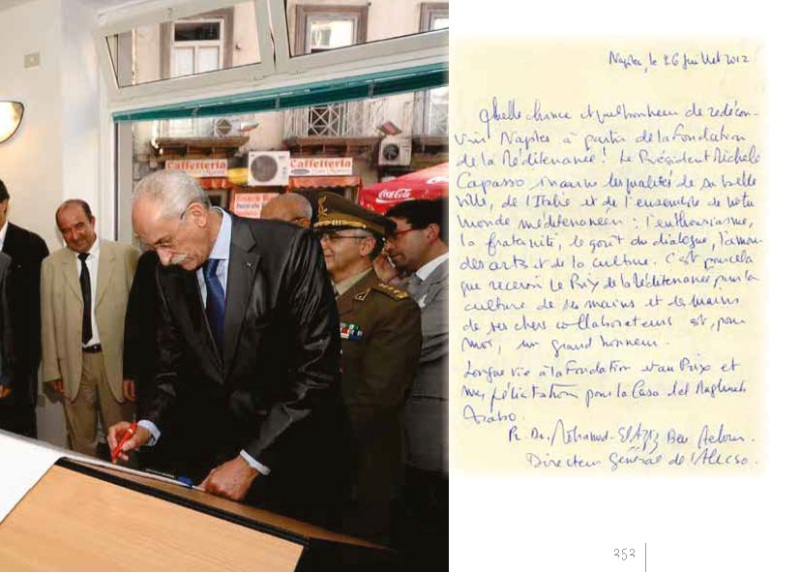 Caffetteria
Caffetteria
Coca-Cola
Naples, le 26 juillet 2012
Quelle chance et quel honneur de redécou-
vrir Naples à partir de la Fondation
de la Méditerranée! Le Président Michele
Capasso, incarne les qualités de sa belle
ville, de l'Italie et de l'ensemble de notre
monde méditerranéen : l'enthousiasme,
la fraternité, le goût du dialogue, l'amour
des arts et de la culture. C'est pour cela
que recevoir le Prix de la Méditerranée pour la
culture de ses mains et des mains
de ses chers collaborateurs est, pour
moi, un grand honneur.
Longue vie à la Fondation et au Prix et
mes félicitations pour la Casa del Maghreb
Arabo.
Pr. Dr. Mohamed-El Aziz Ben Achour
Directeur Général de l'Alecso.
353